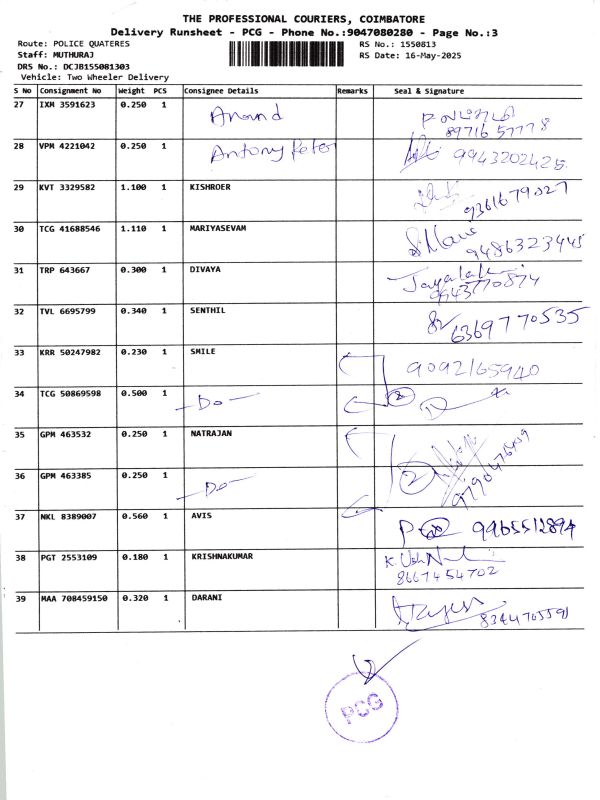 THE PROFESSIONAL COURIERS, COIMBATORE
Delivery Runsheet - PCG - Phone No.:9047080280 - Page No.:3
Route: POLICE QUATERES RS No.: 1550813
Staff: MUTHURAJ RS Date: 16-May-2025
DRS No.: DCJB155081303
Vehicle: Two Wheeler Delivery
S No Consignment No Weight PCS Consignee Details Remarks Seal & Signature
27 IXM 3591623 0.250 1 Anand
89716 57778
28 VPM 4221042 0.250 1 Antony Peter 9943202425
29 KVT 3329582 1.100 1 KISHROER 9361679027
30 TCG 41688546 1.110 1 MARIYASEVAM 9486323445
31 TRP 643667 0.300 1 DIVAYA
9543770874
32 TVL 6695799 0.340 1 SENTHIL 6369770535
33 KRR 50247982 0.230 1 SMILE 9092165940
34 TCG 50869598 0.500 1 -Do- 2
35 GPM 463532 0.250 1 NATRAJAN
36 GPM 463385 0.250 1 -Do- 2 9790476409
37 NKL 8389007 0.560 1 AVIS 9965512894
38 PGT 2553109 0.180 1 KRISHNAKUMAR
8667454702
39 MAA 708459150 0.320 1 DARANI
8344705591
PCG